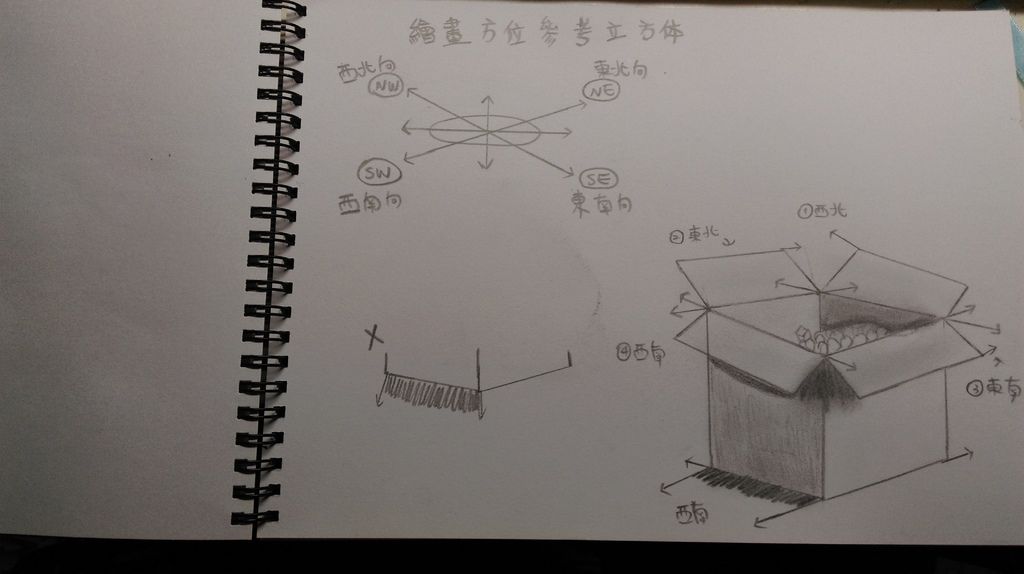 繪畫方位參考立方体
西北向
NW
東北向
NE
SW
西南向
SE
東南向
①西北
②東北
X
④西南
③東南
西南